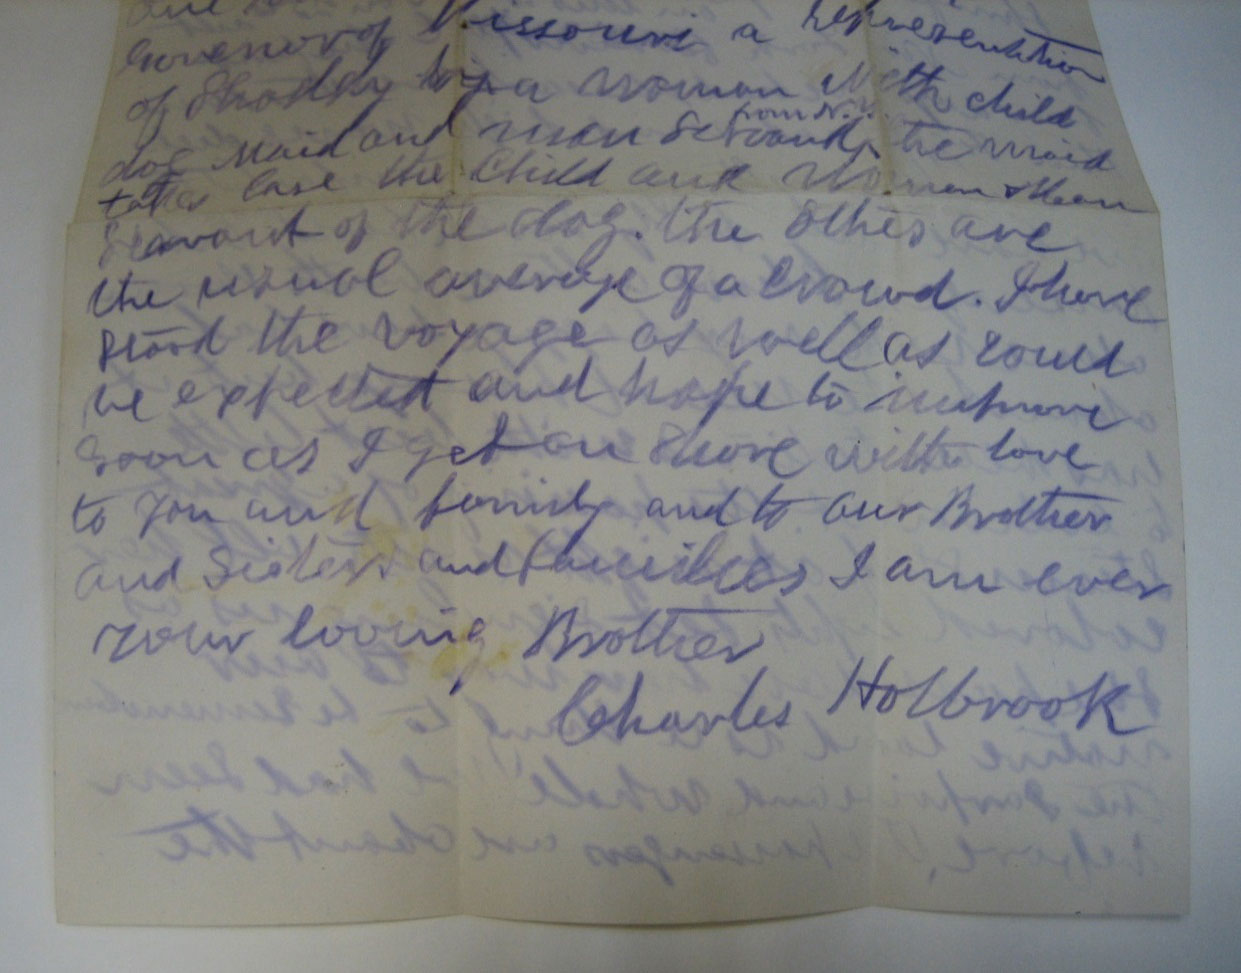 Governor of Missouri a representation
of Shoddy by a woman with child
from N.Y.
dog maid and man servant, the maid
takes care the Child and Woman & Man
Servant of the dog. the others are
the usual average of a crowd. I have
stood the voyage as well as could
be expected and hope to improve
soon as I get on shore with love
to you and family and to our Brother
and Sisters and families I am ever
your loving Brother
Charles Holbrook